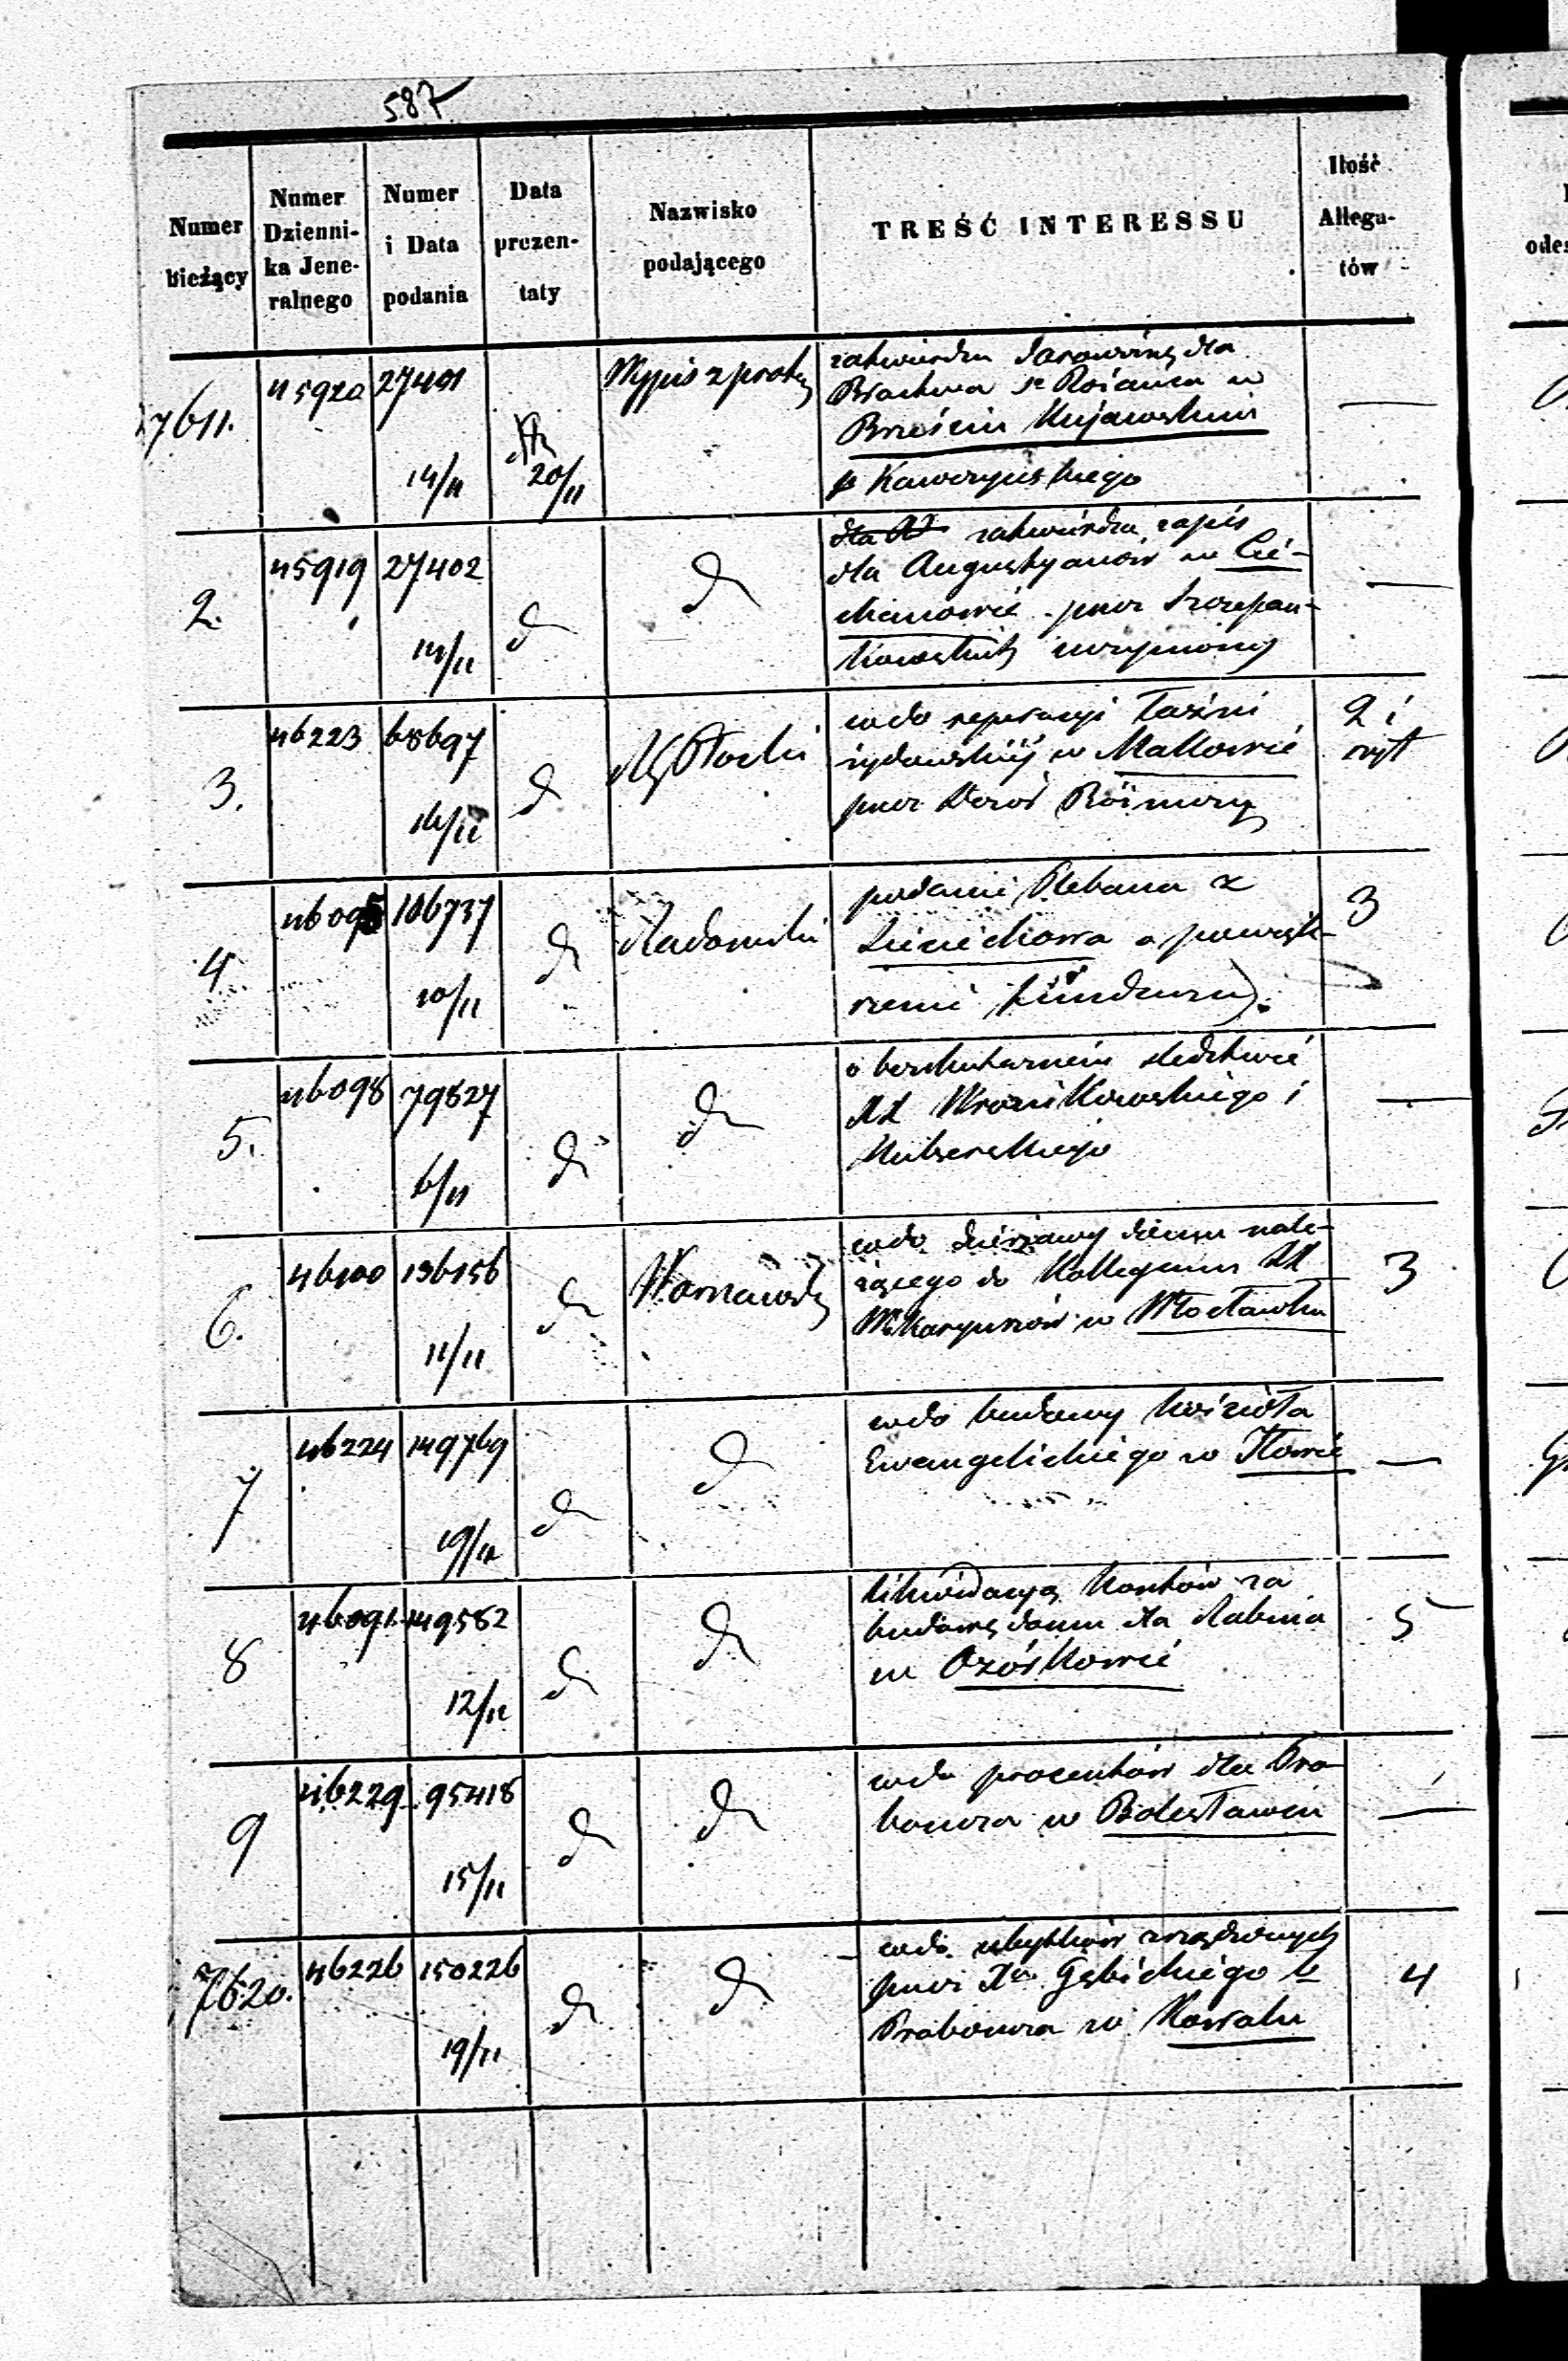 587
Numer bieżący
Numer Dzienni-ka Jene-ralnego
Numer i Data podania
Data prezen-taty
Nazwisko podającego
TREŚĆ INTERESSU
Ilość Allega-tów
7611. 45920 27401 14/11 20/11 Wypis z prot
zatwierdza darowiznę dla
Bractwa Sgo Rożańca w
Brześciu Kujawskim
p Kaweryńskiego —
2. 45919 27402 14/11 d d
dla zatwierdza zapis
dla Augustyanów w Cie-
chanowie przez Szczepan-
kowskich uczyniony —
3. 46223 68697 14/11 d Płocki
co do reperacyi Łaźni
żydowskiej w Makowie
przez Dozór Bóżniczy
2 i
4 46095 106737 10/11 d Radomski
podanie Plebana z
Sieciechowa o powięk-
szenie funduszu.
3
5. 46098 79827 6/11 d d
o bezskutecznem śledztwie
XX Wronikowskiego i
—
6. 46100 136156 11/11 d Warszawski
co do dzierżawy domu nale-
żącego do Kollegium XX
Wikaryuszów w Włocławku
3
7 46224 149769 19/11 d d
co do budowy kościoła
Ewangelickiego w Iłowie —
8 46091 149582 12/11 d d
likwidacyą kosztów za
budowę domu dla Rabina
w Ozorkowie
5
9 46229 95418 15/11 d d
co do procentów dla Pro-
boszcza w Bolesławcu —
7620. 46226 150226 19/11 d d
co do ubytków zrządzonych
przez Xa Gębickiego b
Proboszcza w Kowalu
4